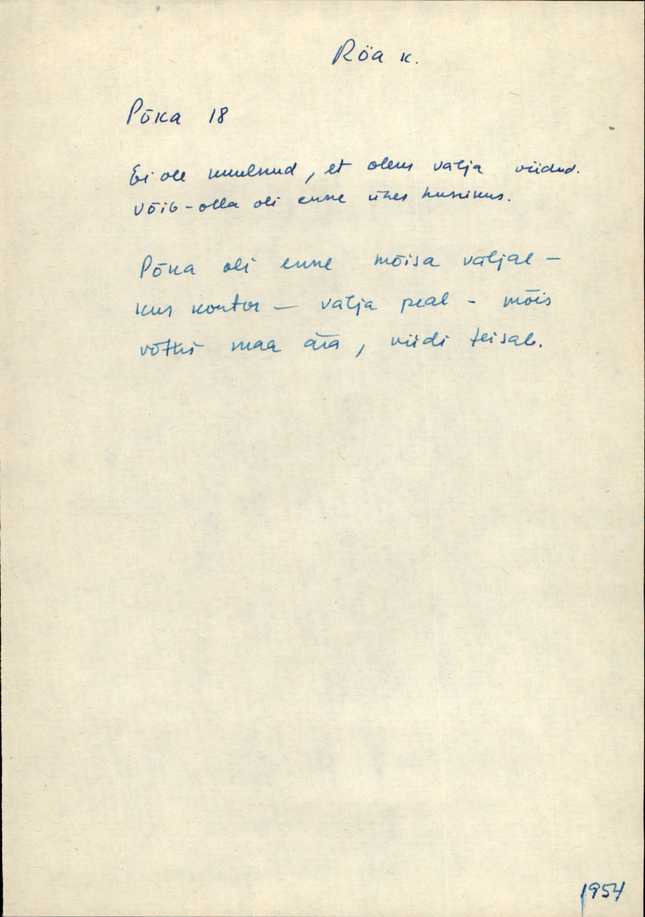 Röa k.
Põka 18
Ei ole kuulnud, et oleks välja viidud.
Võib-olla oli enne ühes hunnikus.
Põka oli enne mõisa väljal –
kus kontor – välja peal – mõis
võttis maa ära, viidi teisale.
1954